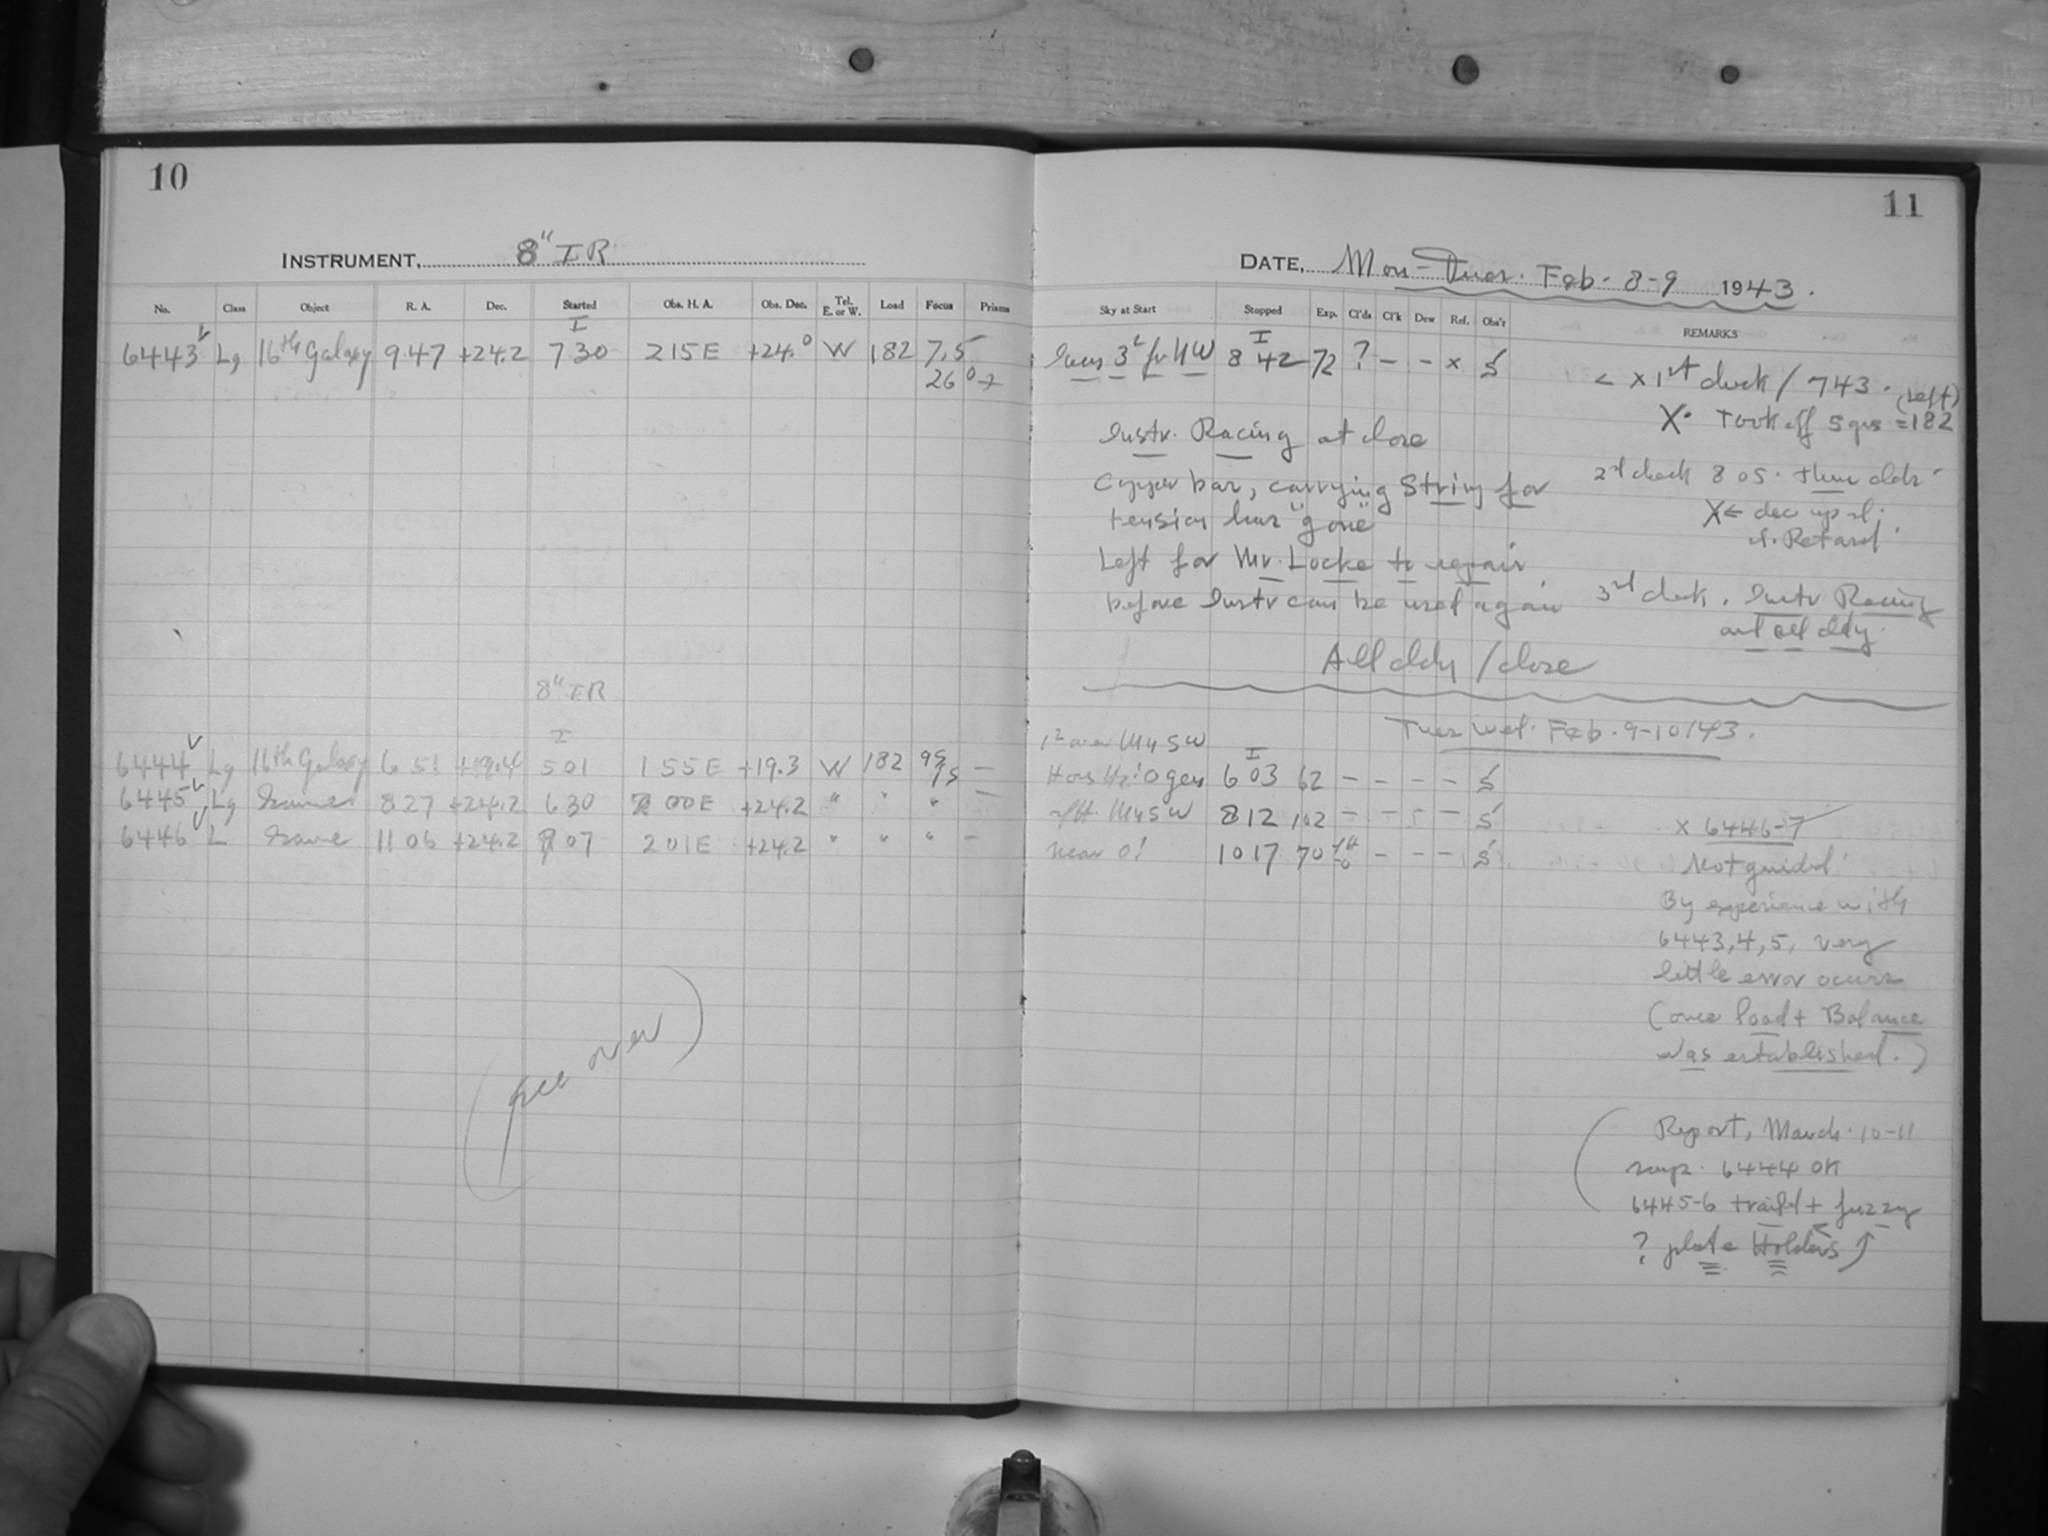 10
INSTRUMENT, 8" IR
No. Class Object R. A. Dec. Started Obs. H. A. Obs. Dec. Tel. E. or W. Load Focus Prisms
I
6443 Lg 16th Galaxy 9 47 +24.2 7 30 2 15 E +24.0 W 182 7.5 –
26°
8" IR
I
6444 Lg 16th Galaxy 6 51 5 01 1 55 E +19.3 W 182 95 –
75
6445 Lg Same 8 27 +24.2 6 30 00 E +24.2 " " " –
6446 L Same 11 06 +24.2 07 2 01 E +24.2 " " " –
(see over)
11
DATE, Mon-Tues. Feb. 8-9 1943.
Sky at Start Stopped Exp. Cl'ds Cl'k Dew Ref. Obs'r REMARKS
I
3 8 42 72 ? – – x S
< x 1st check / 743. (Left)
X. Took off 5 grs = 182
Instr. Racing at close
Copper bar, carrying String for
tension has "gone"
Left for Mr. Locke to repair
before Instr can be used again
2nd check 8 05. then cldy
X ← dec up sl;
sl. Retard
3rd check. Instr Racing
and all cldy.
All cldy / close
Tues Wed. Feb. 9-10/43.
I
6 03 62 – – – – S
8 12 102 – – – S
near 0! 10 17 70 – – – S
x 6446-7
Not guided
By experience with
6443,4,5, very
little error occurs
(once load + Balance
was established.)
Report, March 10-11
says. 6444 OK
6445-6 trailed + fuzzy
? plate Holders ↑